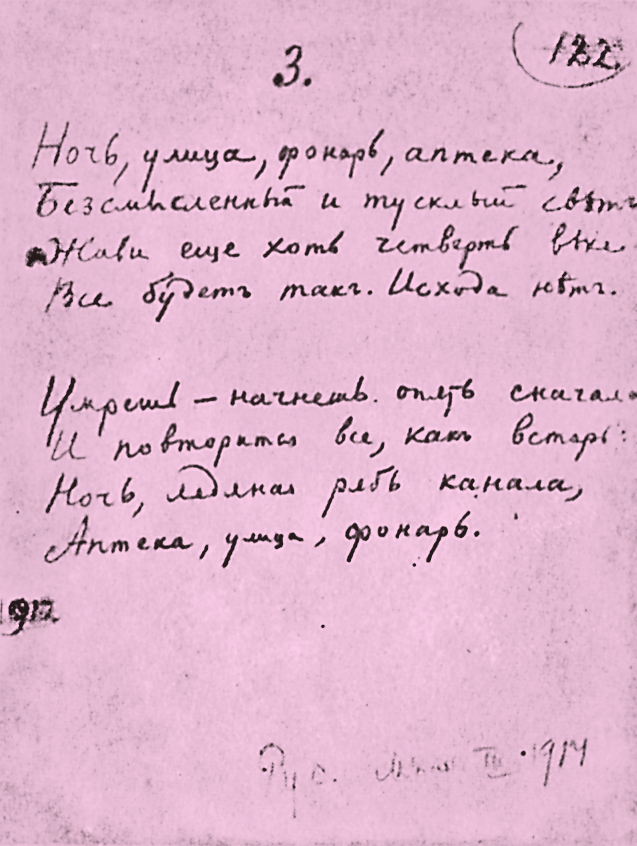 122
3.
Ночь, улица, фонарь, аптека,
Безсмысленный и тусклый свѣтъ
Живи еще хоть четверть вѣка
Все будетъ такъ. Исхода нѣтъ.
Умрешь – начнешь опять сначала
И повторится все, какъ встарь:
Ночь, ледяная рябь канала,
Аптека, улица, фонарь.
1912
Рус. Мысль III 1914